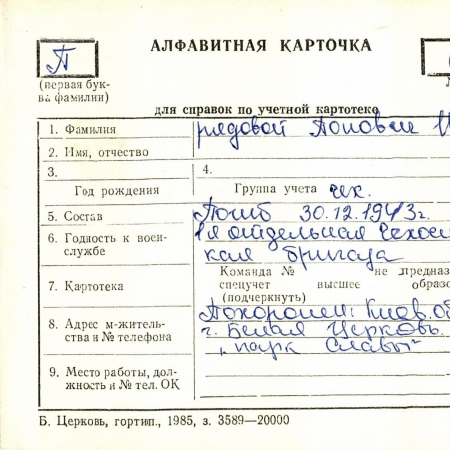 АЛФАВИТНАЯ КАРТОЧКА
П
(первая бук-
ва фамилии)
для справок по учетной картотеке
1. Фамилия рядовой
2. Имя, отчество
3.
4.
Год рождения Группа учета чех.
5. Состав Погиб 30.12.1943г.
6. Годность к воен- 1я отдельная Чехос
службе кая бригада
Команда № не предназ
7. Картотека спецучет высшее образо
(подчеркнуть)
Похоронен: Киев. об
8. Адрес м-житель- г. Белая Церковь.
ства и № телефона „парк Славы"
9. Место работы, дол-
жность и № тел. ОК
Б. Церковь, гортип., 1985, з. 3589—20000